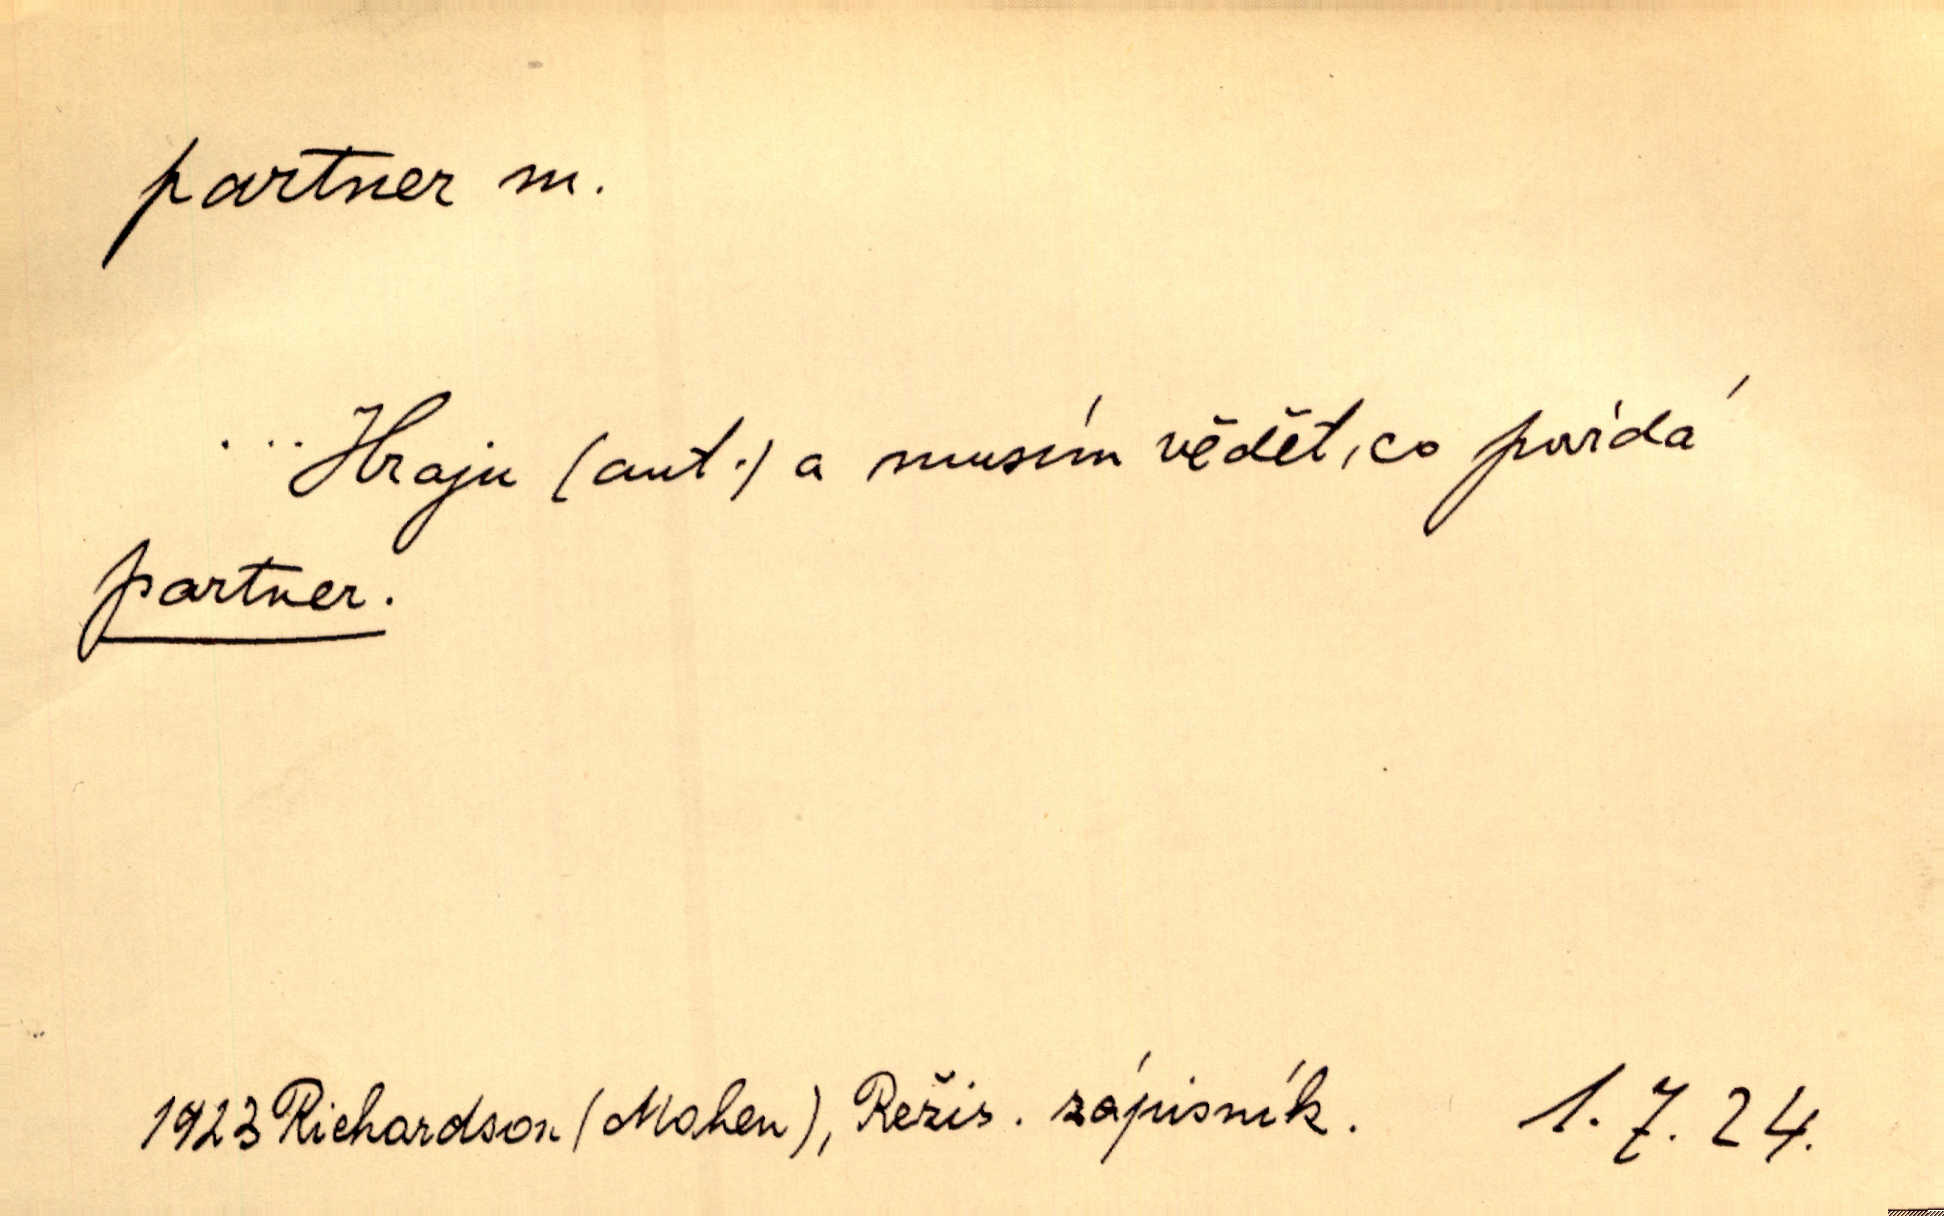 partner m.
...Hraju (aut.) a musím vědět, co povídá
partner.
1923 Richardson (Mahen), Režis. zápisník. 1.7.24.